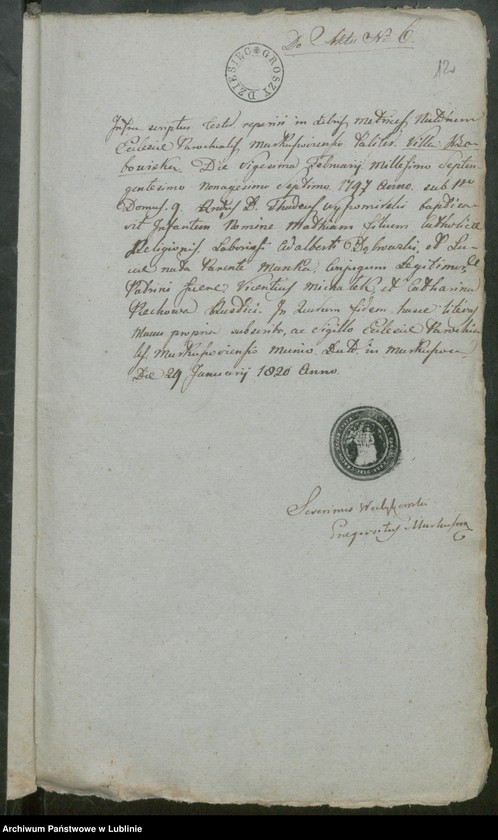 Do Aktu No 6.
12
DZIESIĘC GROSZY
Infra scriptus testor reperiri in Libris Metrices Natorum
Ecclesie Parochialis Markuszoviensis Tales. Villa Wo-
bowiska Die Vigesima Februarij Millesimo Septin
gentesimo Nonagesimo Septimo 1797 Anno. sub No
Domus. 9 D. Thadeus baptisa-
vit Infantem Nomine Mathiam filium Catholicae
Religionis Laboriosi Adalberti Dąbrowski, et Lu-
cie nata Parente Manka, Conjugum Legitimor.
Patrini fuere Vicentius Michalek, et Catharina
Rechowa Rustici. In quorum fidem hasce literas
Manu propria subscribo, ac sigillo Ecclesie Parochia
lis Markuszoviensis Munio. Datt. in Markuszow
Die 24 Januarij 1820 Anno.
Severinus
Praepositus Markusz
Archiwum Państwowe w Lublinie